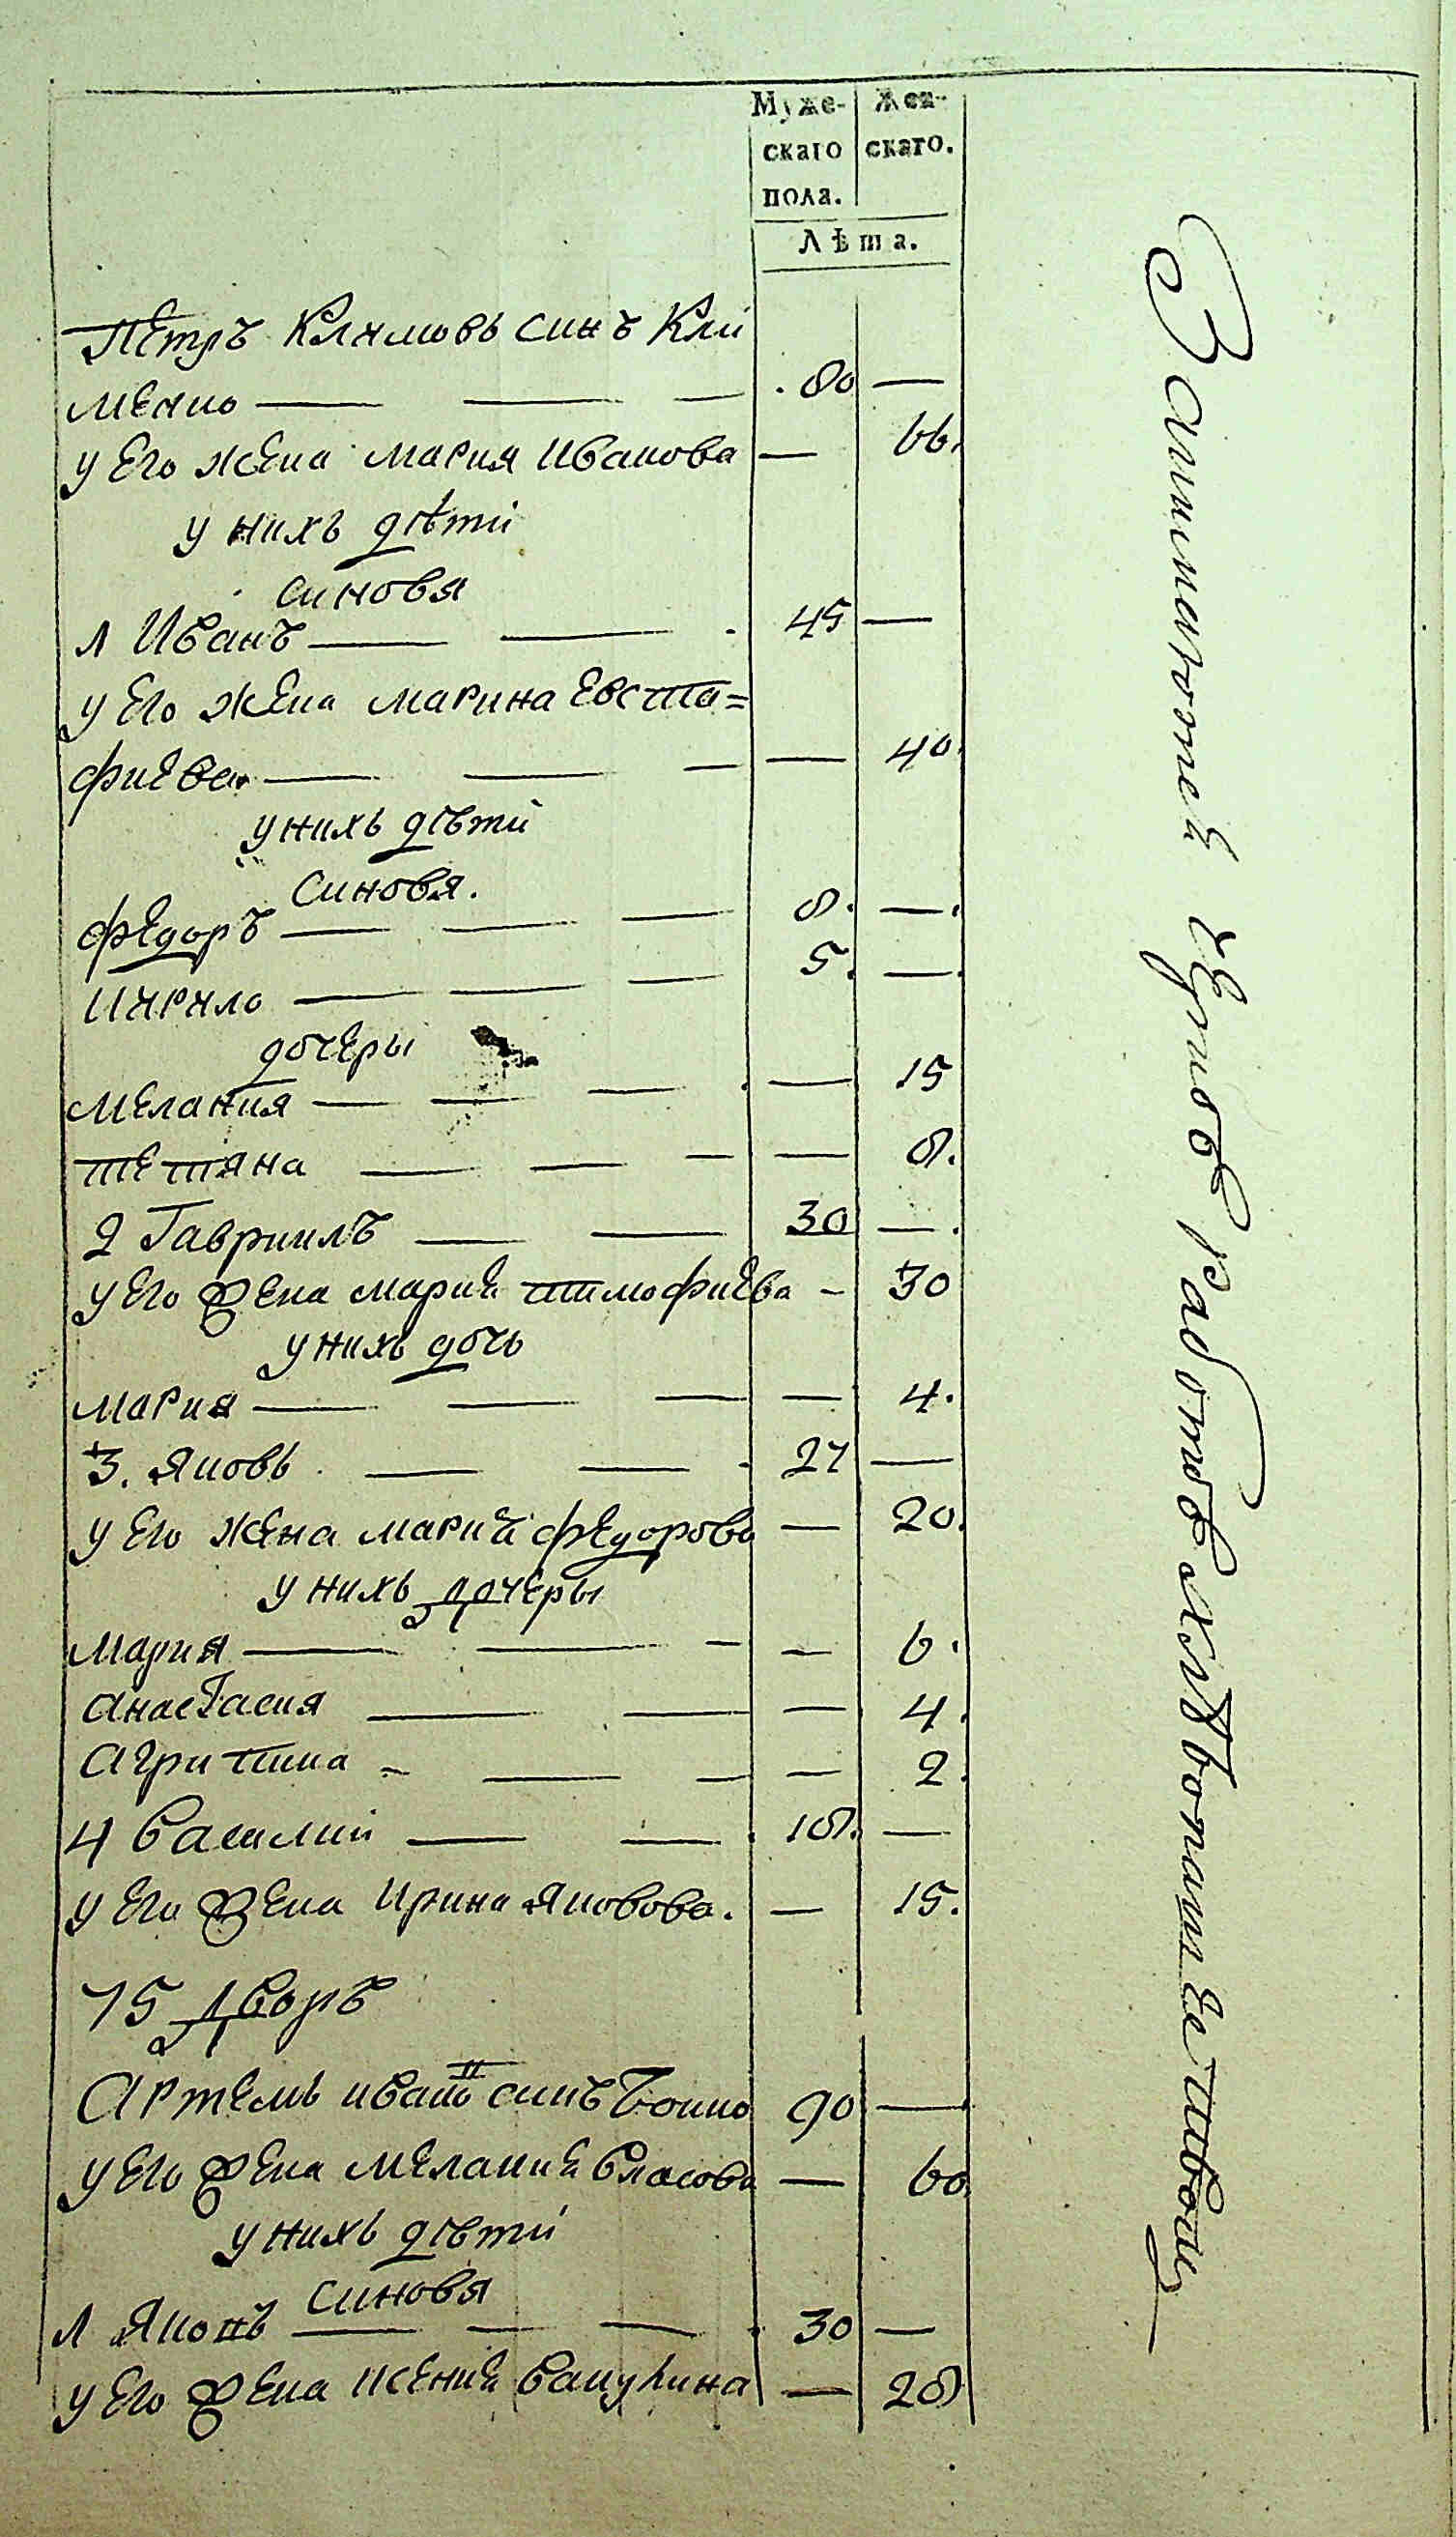 Муже- Жен-
скаго скаго.
пола.
Лѣта.
Петръ Климовь синъ Кли
менко — — — 80 —
у Его жена Мария Иванова — 66.
у нихь дѣти
синовя
1 Иванъ — — 45 —
у Его жена Марина Евста=
фиева — — — — 40.
у нихь дѣти
синовя.
Федоръ — — — 8. —.
Кирило — — — 5. —.
дочеры
Мелания — — — — 15
Тетяна — — — — 8.
2 Гавриилъ — — 30 —.
у Его жена Мария Тимофиева — 30
у нихь дочь
Мария — — — — 4.
3. Яковь — — 27 —
у Его жена Мария Федорова — 20.
у нихь дочеры
Мария — — — — 6.
Анастасия — — — 4.
Агрипина — — — — 2.
4 Василий — — 18. —
у Его жена Ирина Яковова. — 15.
75 Дворъ
Артемь Иванъ синъ Бойко 90 —
у Его жена Мелания Власова — 60.
у нихь дѣти
синовя
1 Яковь — — — 30 —
у Его жена Ксения — 28